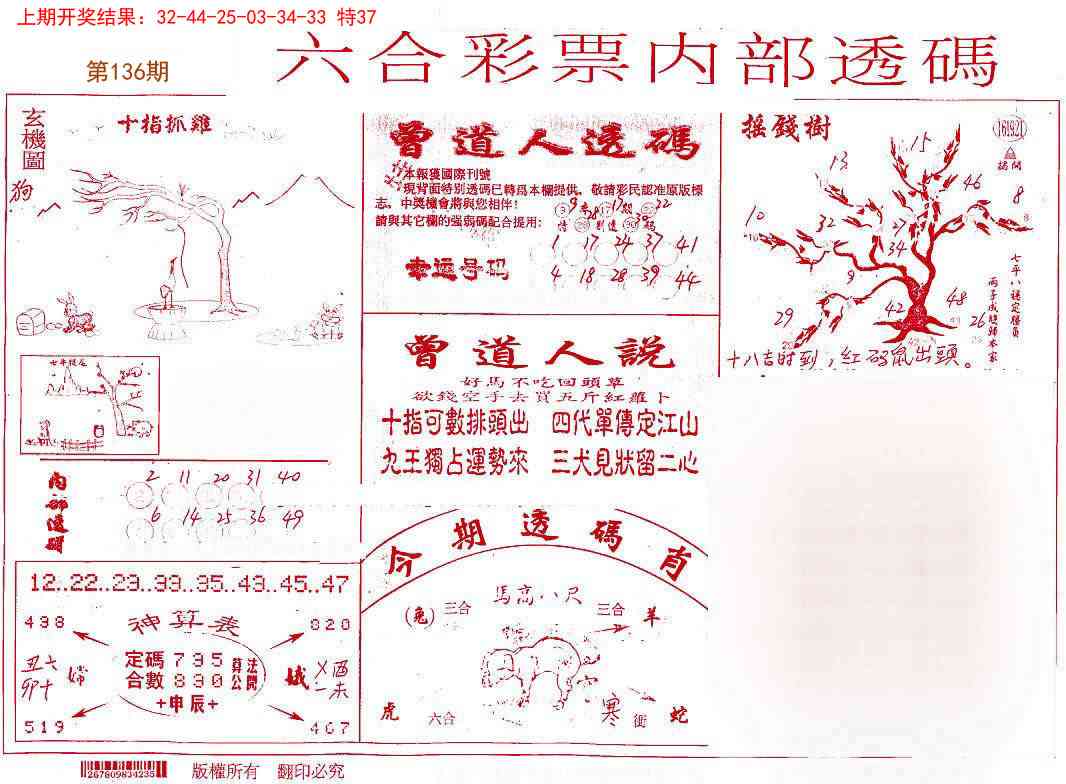 上期开奖结果：32-44-25-03-34-33 特37
第136期
六合彩票内部透碼
玄機圖
狗
十指抓雞
曾道人透碼
本報獲國際刊號
現背面特别透碼已轉爲本欄提供，敬請彩民認准原版標
志，中獎機會將與您相伴！
請與其它欄的強弱碼配合提用：
幸运号码
1 17 24 37 41
4 18 28 39 44
摇錢樹
161921
15
13
46
8
10
32
27
34
9
29
42
48
26
七平八穩定勝負
兩子成雙歸本家
十八吉时到，紅码鼠出頭。
曾道人說
好馬不吃回頭草
欲錢空手去買五斤紅蘿卜
十指可數排頭出 四代單傳定江山
九王獨占運勢來 三犬見狀留二心
内部透碼
2 11 20 31 40
6 14 25 36 49
12..22..29..33..35..43..45..47
498
神算表
020
丑六
卯十
嫦
定碼 795
合數 890
算公
法開
+申辰+
娥
酉
未
519
467
今期透碼肖
(兔) 三合
馬高八尺
三合 羊
虎 六合
寒
衝 蛇
267809834235
版權所有 翻印必究